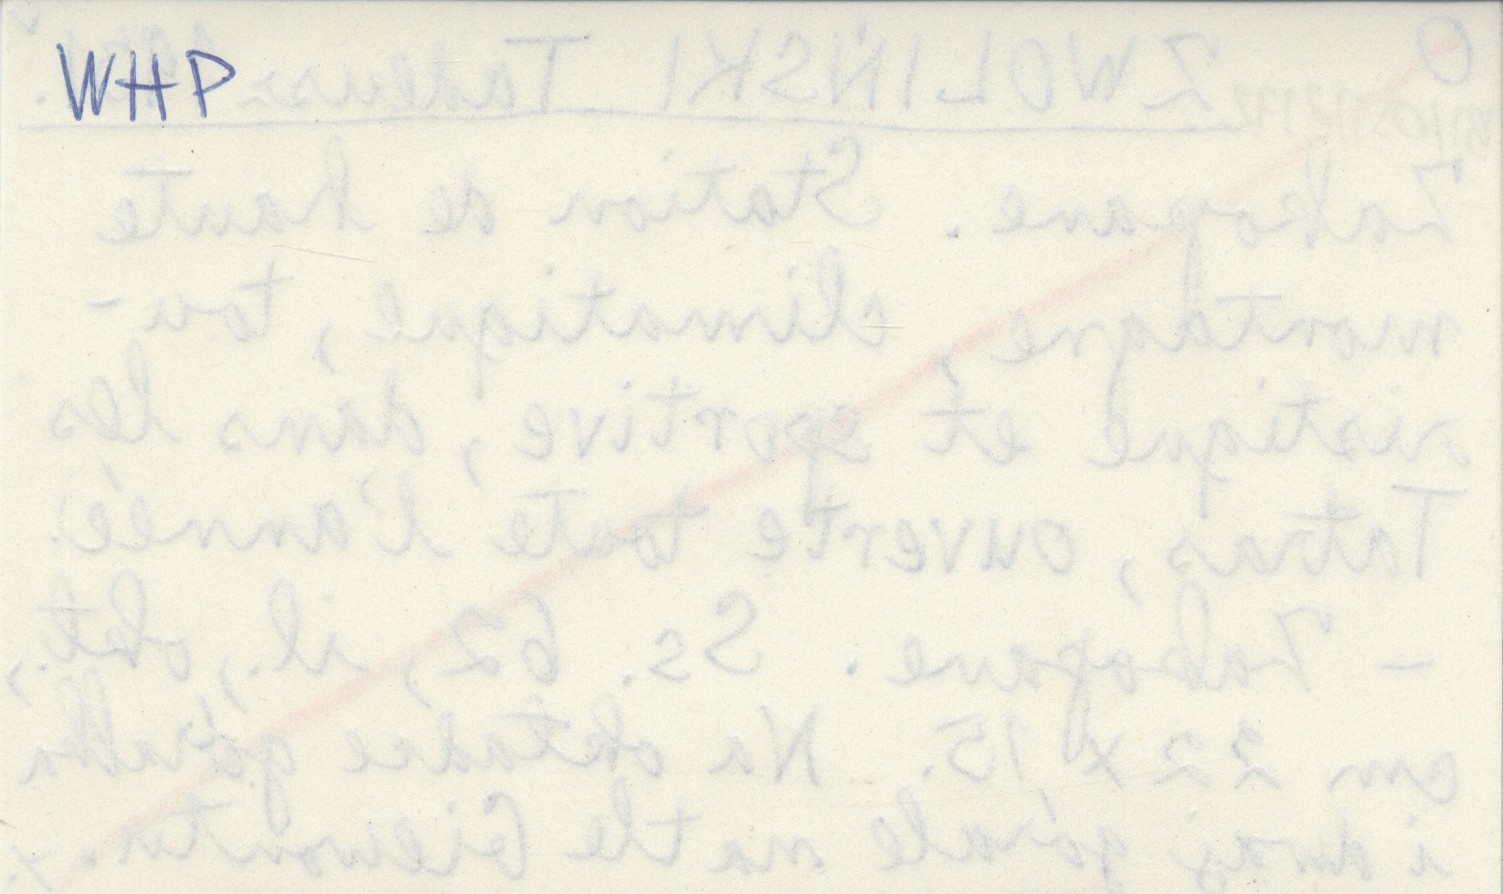 WHP
ZWOLIŃSKI Tadeusz
Zakopane. Station de haute
montagne, climatique, tou-
ristique et sportive, dans les
Tatras, ouverte toute l'année
- Zakopane. Ss. 62, il., okł.,
cm 22 x 15. Na okładce góralka
i dwaj górale na tle Giewontu.